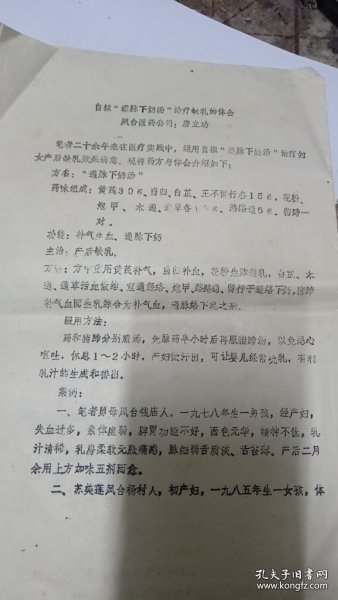 自拟“通脉下奶汤”治疗缺乳的体会
凤台医药公司：唐立功
笔者二十余年来在医疗实践中，运用自拟“通脉下奶汤”治疗妇
女产后缺乳效果满意，现将药方与体会介绍如下：
方名：“通脉下奶汤”
药味组成：黄芪30g、当归、白芷、王不留行各15g，花粉、
炮甲、木通、 草各1 g、路路通9g、猪蹄一
对。
功能：补气生血、通脉下奶
主治：产后缺乳。
方中重用黄芪补气，当归补血，花粉生津 乳，白芷、木
通、 草活血 ，宣通经络，炮甲、路路通、留行子通络下奶，猪蹄
补气血而生乳综合为补气血，通脉络下乳之剂。
服用方法：
药和猪蹄分别煎汤，先服药半小时后再服猪蹄汤，以免恶心
呕吐，休息1～2小时，产妇微汗出，可让婴儿经常吮乳，有利
乳汁的生成和排出。
案例：
一、笔者舅母凤台钱庙人，一九七八年生一男孩，经产妇，
失血过多，素体虚弱，脾胃功能不好，面色无华，精神不佳，乳
汁清稀，乳房柔软无胀痛感，脉细弱舌质淡、舌苔薄、产后二月
余用上方加味五剂而愈。
二、苏英莲凤台杨村人，初产妇，一九八五年生一女孩，体
孔夫子旧书网